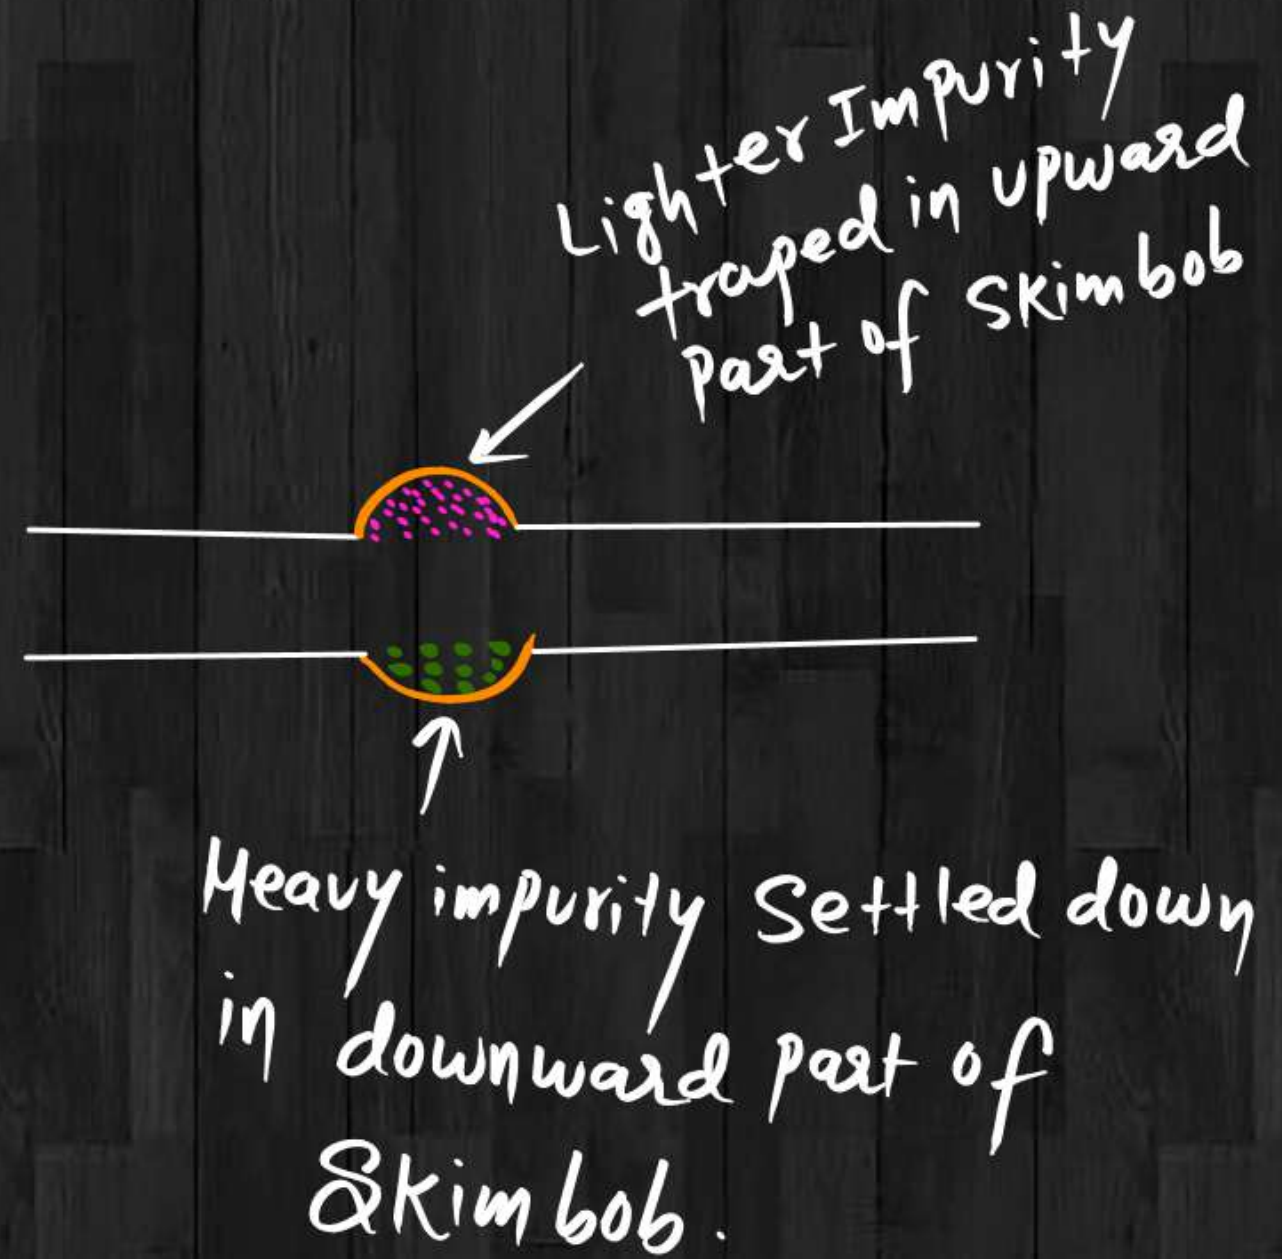 Lighter Impurity
traped in upward
part of skimbob
Heavy impurity Settled down
in downward part of
Skimbob.